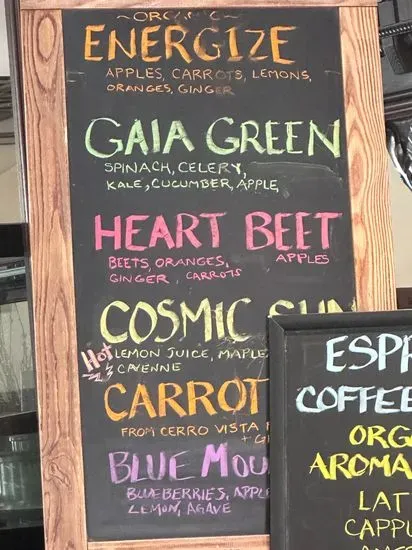 ~ORGANIC~
ENERGIZE
APPLES, CARROTS, LEMONS,
ORANGES, GINGER
GAIA GREEN
SPINACH, CELERY,
KALE, CUCUMBER, APPLE
HEART BEET
BEETS, ORANGES, APPLES
GINGER, CARROTS
COSMIC SUN
Hot LEMON JUICE, MAPLE
CAYENNE
CARROT
FROM CERRO VISTA
+ GI
BLUE MOU
BLUEBERRIES, APPL
LEMON, AGAVE
ESPR
COFFEE
ORG
AROMA
LAT
CAPPU